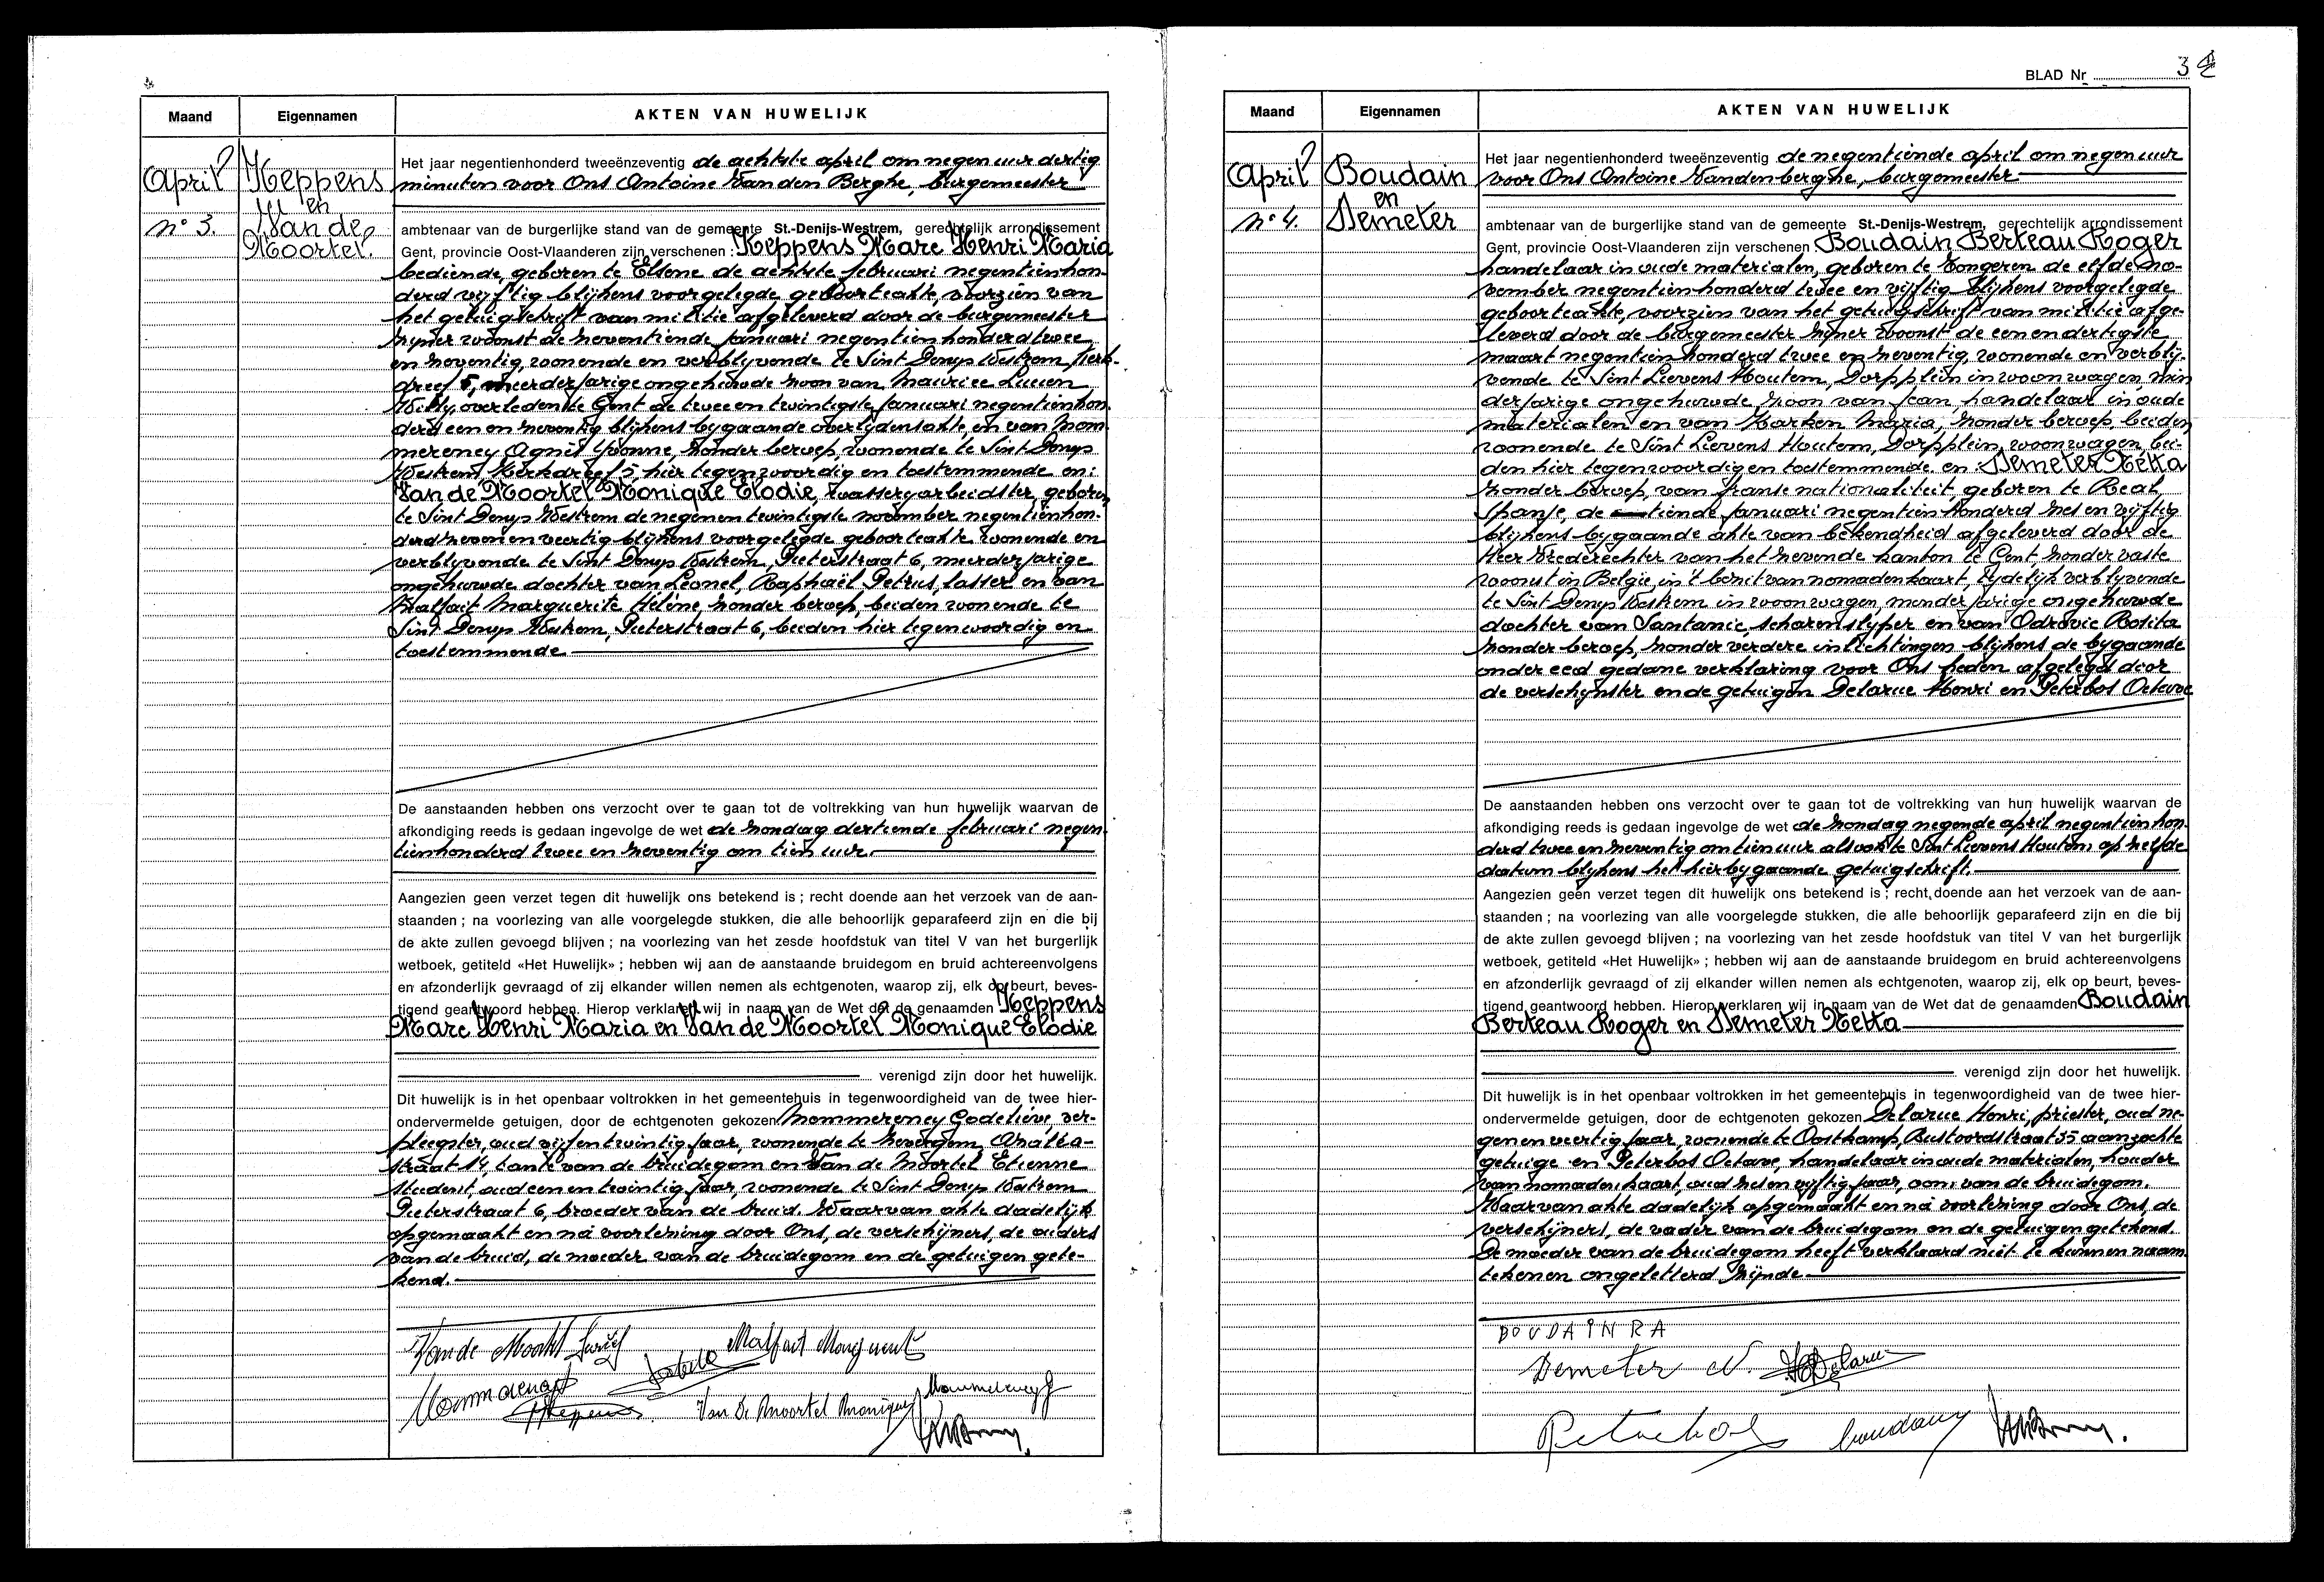 Maand
Eigennamen
AKTEN VAN HUWELIJK
April
n° 3.
Keppens
en
Van de
Moortel.
Het jaar negentienhonderd tweeënzeventig de achtste april om negen uur dertig
minuten voor Ons Antoine Van den Berghe, burgemeester
ambtenaar van de burgerlijke stand van de gemeente St.-Denijs-Westrem, gerechtelijk arrondissement
Gent, provincie Oost-Vlaanderen zijn verschenen : Keppens Marc Henri Maria
bediende, geboren te Elsene de achtste februari negentienhon-
derd vijftig blijkens voorgelegde geboorteakte, voorzien van
het getuigschrift van militie afgeleverd door de burgemeester
zijner woonst de zeventiende januari negentienhonderd twee
en zeventig, wonende en verblyvende te Sint Denys Westrem, Kerk-
dreef 5, meerderjarige ongehuwde zoon van, Maurice Lucien
Willy, overleden te Gent de twee en twintigste januari negentienhon-
derd een en zeventig blijkens bygaande overlijdensakte, en van Mom-
merency Agnès Yvonne, zonder beroep, wonende te Sint Denys
Westrem, Kerkdreef 5, hier tegenwoordig en toestemmende en:
Van de Moortel Monique Elodie, wasserijarbeidster, geboren
te Sint Denys Westrem de negen en twintigste november negentienhon-
derd zeven en veertig blijkens voorgelegde geboorteakte wonende en
verblyvende te Sint Denys Westrem, Pieterstraat 6, meerderjarige
ongehuwde dochter van Leonel, Raphaël Petrus, lasser en van
Malfait Marguerite Hélène, zonder beroep, beiden wonende te
Sint Denys Westrem, Pieterstraat 6, beiden hier tegenwoordig en
toestemmende
De aanstaanden hebben ons verzocht over te gaan tot de voltrekking van hun huwelijk waarvan de
afkondiging reeds is gedaan ingevolge de wet de zondag dertiende februari negen-
tienhonderd twee en zeventig om tien uur.
Aangezien geen verzet tegen dit huwelijk ons betekend is ; recht doende aan het verzoek van de aan-
staanden ; na voorlezing van alle voorgelegde stukken, die alle behoorlijk geparafeerd zijn en die bij
de akte zullen gevoegd blijven ; na voorlezing van het zesde hoofdstuk van titel V van het burgerlijk
wetboek, getiteld «Het Huwelijk» ; hebben wij aan de aanstaande bruidegom en bruid achtereenvolgens
en afzonderlijk gevraagd of zij elkander willen nemen als echtgenoten, waarop zij, elk op beurt, beves-
tigend geantwoord hebben. Hierop verklaren wij in naam van de Wet dat de genaamden Keppens
Marc Henri Maria en Van de Moortel Monique Elodie
verenigd zijn door het huwelijk.
Dit huwelijk is in het openbaar voltrokken in het gemeentehuis in tegenwoordigheid van de twee hier-
ondervermelde getuigen, door de echtgenoten gekozen Mommerency Godelieve, ver-
pleegster, oud vijf en twintig jaar, wonende te Zevergem,
straat 14, tante van de bruidegom en Van de Moortel Etienne
student, oud een en twintig jaar, wonende te Sint Denys Westrem
Pieterstraat 6, broeder van de bruid. Waarvan akte dadelijk
opgemaakt en na voorlezing door Ons, de verschijners, de ouders
van de bruid, de moeder van de bruidegom en de getuigen gete-
kend.
Malfait Marguerite
Van De Moortel Monique
BLAD Nr 3
Maand
Eigennamen
AKTEN VAN HUWELIJK
April
n° 4.
Boudain
en
Demeter
Het jaar negentienhonderd tweeënzeventig de negentiende april om negen uur
voor Ons Antoine Vandenberghe, burgemeester
ambtenaar van de burgerlijke stand van de gemeente St.-Denijs-Westrem, gerechtelijk arrondissement
Gent, provincie Oost-Vlaanderen zijn verschenen Boudain Berteau Roger
handelaar in oude materialen, geboren te Tongeren de elfde no-
vember negentienhonderd twee en vijftig blijkens voorgelegde
geboorteakte, voorzien van het getuigschrift van militie afge-
leverd door de burgemeester zijner woonst de een en dertigste
maart negentienhonderd twee en zeventig, wonende en verblij-
vende te Sint Lievens Houtem, Dorpplein in woonwagen, min
derjarige ongehuwde zoon van Jean, handelaar in oude
materialen en van Harken Maria, zonder beroep, beiden
wonende te Sint Lievens Houtem, Dorpplein, woonwagen, bei-
den hier tegenwoordig en toestemmende en : Demeter Netta
zonder beroep, van franse nationaliteit, geboren te Real,
Spanje, de tiende januari negentienhonderd zes en vijftig
blijkens bygaande akte van bekendheid afgeleverd door de
Heer Vrederechter van het zevende kanton te Gent, zonder vaste
woonst in België, in 't bezit van nomadenkaart, tijdelijk verblyvende
te Sint Denys Westrem in woonwagen, minderjarige ongehuwde
dochter van Santanic, scharenslyper en van Odrovic Rosita
zonder beroep, zonder verdere inlichtingen blijkens de bygaande
onder eed gedane verklaring voor Ons heden afgelegd door
de verschijnster en de getuigen Delarue Henri en Peterbos Octave
De aanstaanden hebben ons verzocht over te gaan tot de voltrekking van hun huwelijk waarvan de
afkondiging reeds is gedaan ingevolge de wet de zondag negende april negentienhon-
derd twee en zeventig om tien uur alsook te Sint Lievens Houtem op zelfde
datum blijkens het hierbygaande getuigschrift.
Aangezien geen verzet tegen dit huwelijk ons betekend is ; recht doende aan het verzoek van de aan-
staanden ; na voorlezing van alle voorgelegde stukken, die alle behoorlijk geparafeerd zijn en die bij
de akte zullen gevoegd blijven ; na voorlezing van het zesde hoofdstuk van titel V van het burgerlijk
wetboek, getiteld «Het Huwelijk» ; hebben wij aan de aanstaande bruidegom en bruid achtereenvolgens
en afzonderlijk gevraagd of zij elkander willen nemen als echtgenoten, waarop zij, elk op beurt, beves-
tigend geantwoord hebben. Hierop verklaren wij in naam van de Wet dat de genaamden Boudain
Berteau Roger en Demeter Netta
verenigd zijn door het huwelijk.
Dit huwelijk is in het openbaar voltrokken in het gemeentehuis in tegenwoordigheid van de twee hier-
ondervermelde getuigen, door de echtgenoten gekozen Delarue Henri, priester, oud ne-
gen en veertig jaar, wonende te Oostkamp, 55 aanzochte
getuige en Peterbos Octave, handelaar in oude materialen, houder
van nomadenkaart, oud zes en vijftig jaar, oom van de bruidegom.
Waarvan akte dadelijk opgemaakt en na voorlezing door Ons, de
verschijners, de vader van de bruidegom en de getuigen getekend.
De moeder van de bruidegom heeft verklaard niet te kunnen naam-
tekenen ongeletterd zijnde
BOUDAIN RA
Demeter N. Delarue